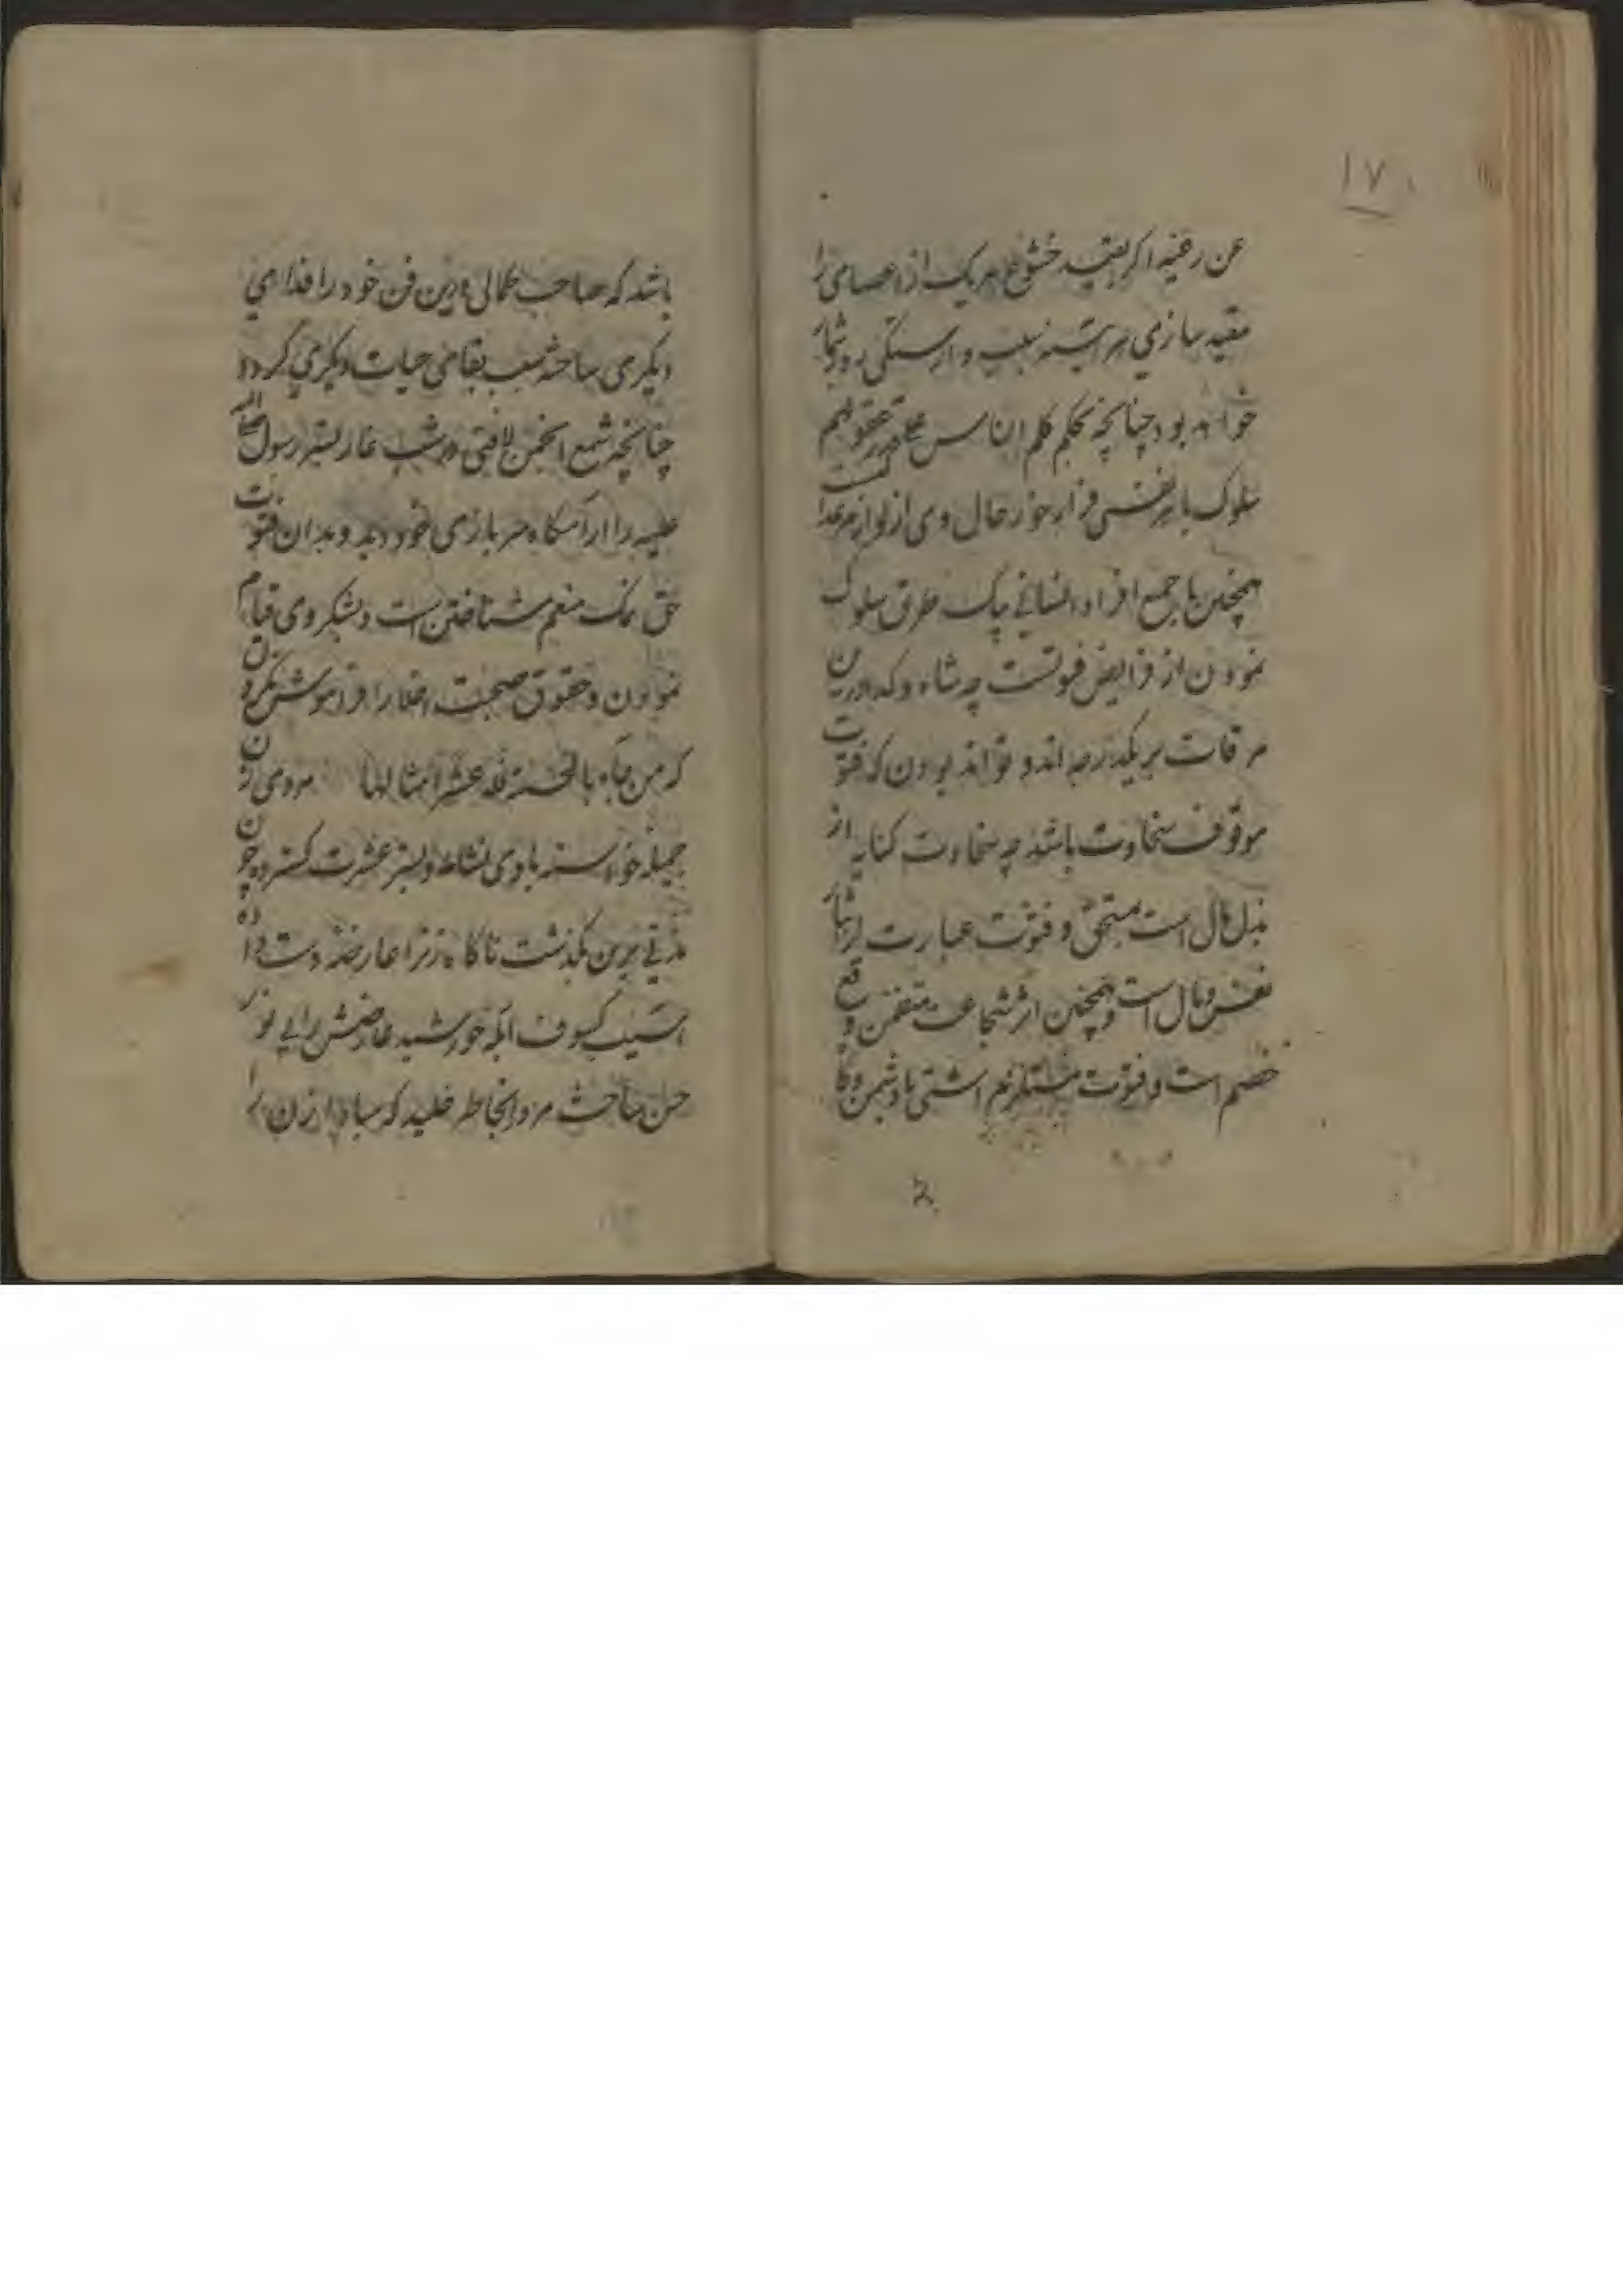 ١٧
عن رعیته اگر بقید خشوع هر یک از اعضای را
مقید سازی هر آینه سبب وارستگی روز شمار
خواهد بود چنانچه بحکم کلم الناس علی قدر عقولهم
سلوک با هر نفسی فراخور حال وی از لوازم عدالت است
همچنین با جمیع افراد انسانی بیک طریق سلوک
نمودن از فرایض فتوتست چه شاه و گدا درین
مرقات بر یکدرجه اند و تواند بودن که فتوت
موقوف سخاوت باشد چه سخاوت کنایه از
بذل مال است بمستحق و فتوت عبارت از ایثار
نفس و مال است و همچنین اثر شجاعت متضمن دفع
خصم است و فتوت مستلزم اشتی با دشمن و
باشد که صاحب کمالی درین فن خود را فدای
دیگری ساخته سبب بقای حیات دیگری گردد
چنانچه شمع انجمن لافتی در شب غار بستر رسول صلی الله
علیه را آرامگاه سربازی خود دید و بدان فتوت
حق نمک منعم شناختن است و بشکر وی قیام
نمودن و حقوق صحبت اخلا را فراموش نکردن
که من جاء بالحسنة فله عشر امثالها مردی زن
جمیله خواسته با وی نشاط و بستر عشرت گسترده چون
مدتی برین بگذشت ناگاه زنرا عارضه دست داده
آسیب کسوف آبله خورشید عارضش را بی نور
حسن ساخت مرد را بخاطر خلید که مبادا زن را